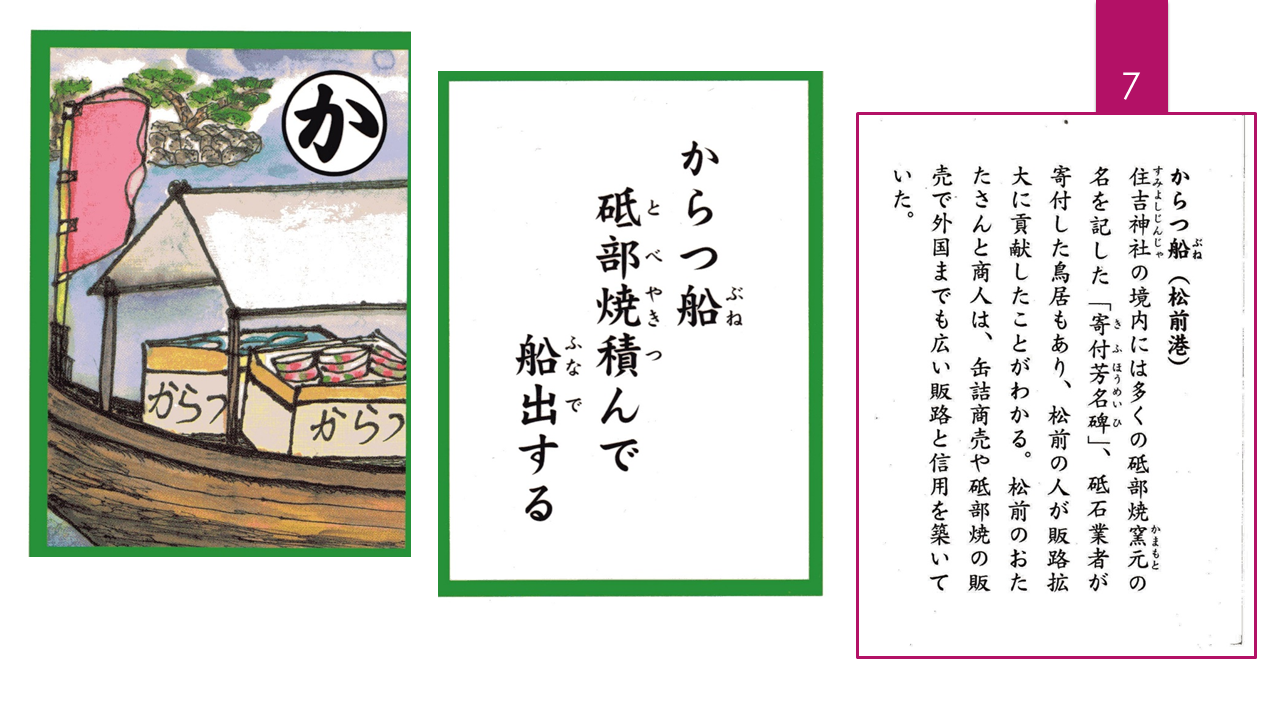 7
か
からつ
からつ
からつ船
砥部焼積んで
船出する
からつ船（松前港）
住吉神社の境内には多くの砥部焼窯元の
名を記した「寄付芳名碑」、砥石業者が
寄付した鳥居もあり、松前の人が販路拡
大に貢献したことがわかる。松前のおた
たさんと商人は、缶詰商売や砥部焼の販
売で外国までも広い販路と信用を築いて
いた。